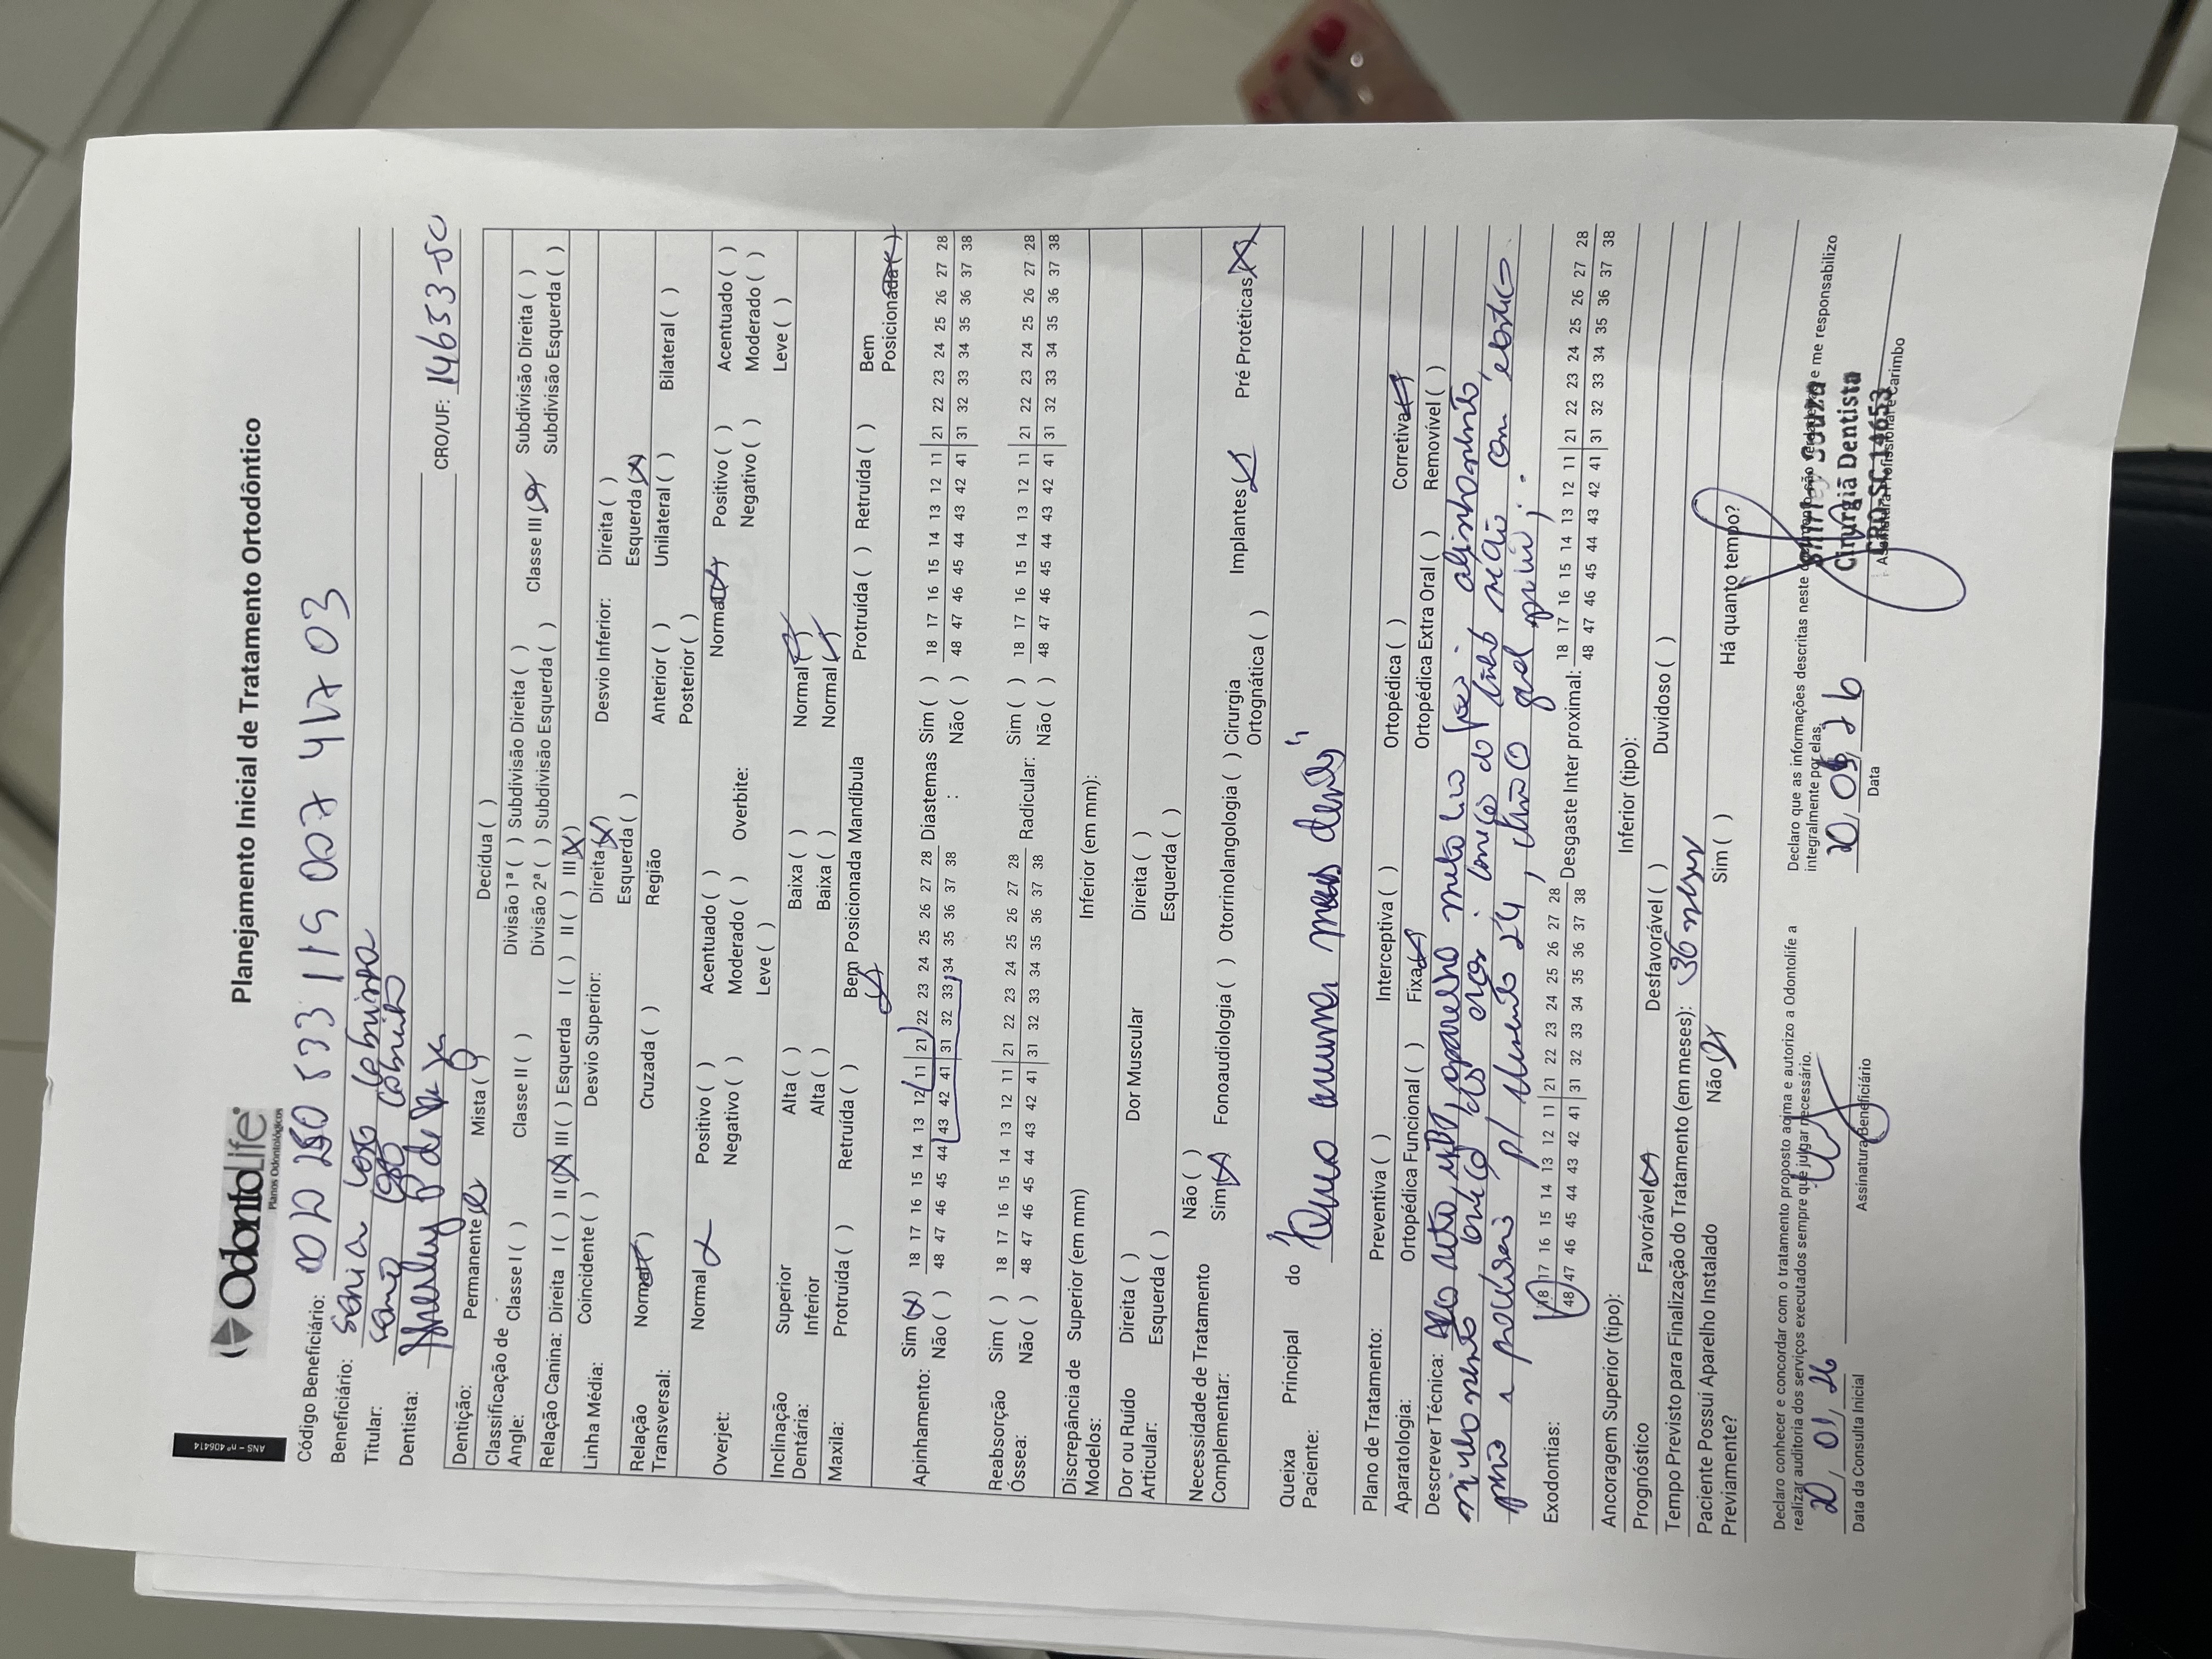 ANS - nº 406414
OdontoLife
Planos Odontológicos
Planejamento Inicial de Tratamento Ortodôntico
Código Beneficiário: 533 119 007 417 03
Beneficiário: Sonia
Titular:
Dentista: Shirley CRO/UF: 14653-SC
Dentição: Permanente (x) Mista ( ) Decídua ( )
Classificação de Angle: Classe I ( ) Classe II ( ) Divisão 1ª ( ) Subdivisão Direita ( ) Classe III (x) Subdivisão Direita ( )
Divisão 2ª ( ) Subdivisão Esquerda ( ) Subdivisão Esquerda ( )
Relação Canina: Direita I ( ) II (x) III ( ) Esquerda I ( ) II ( ) III (x)
Linha Média: Coincidente ( ) Desvio Superior: Direita (x) Desvio Inferior: Direita ( )
Esquerda ( ) Esquerda (x)
Relação Transversal: Normal (x) Cruzada ( ) Região Anterior ( ) Unilateral ( ) Bilateral ( )
Posterior ( )
Overjet: Normal x Positivo ( ) Acentuado ( ) Overbite: Normal (x) Positivo ( ) Acentuado ( )
Negativo ( ) Moderado ( ) Negativo ( ) Moderado ( )
Leve ( ) Leve ( )
Inclinação Dentária: Superior Alta ( ) Baixa ( ) Normal (x)
Inferior Alta ( ) Baixa ( ) Normal (x)
Maxila: Protruída ( ) Retruída ( ) Bem Posicionada (x) Mandíbula Protruída ( ) Retruída ( ) Bem Posicionada (x)
Apinhamento: Sim (x) 18 17 16 15 14 13 12 11 | 21 22 23 24 25 26 27 28 Diastemas : Sim ( ) 18 17 16 15 14 13 12 11 | 21 22 23 24 25 26 27 28
Não ( ) 48 47 46 45 44 43 42 41 | 31 32 33 34 35 36 37 38 Não ( ) 48 47 46 45 44 43 42 41 | 31 32 33 34 35 36 37 38
Reabsorção Óssea: Sim ( ) 18 17 16 15 14 13 12 11 | 21 22 23 24 25 26 27 28 Radicular: Sim ( ) 18 17 16 15 14 13 12 11 | 21 22 23 24 25 26 27 28
Não ( ) 48 47 46 45 44 43 42 41 | 31 32 33 34 35 36 37 38 Não ( ) 48 47 46 45 44 43 42 41 | 31 32 33 34 35 36 37 38
Discrepância de Modelos: Superior (em mm) Inferior (em mm):
Dor ou Ruído Articular: Direita ( ) Dor Muscular Direita ( )
Esquerda ( ) Esquerda ( )
Necessidade de Tratamento Complementar: Não ( )
Sim (x) Fonoaudiologia ( ) Otorrinolangologia ( ) Cirurgia Ortognática ( ) Implantes (x) Pré Protéticas (x)
Queixa Principal do Paciente: "Quero arrumar meus dentes"
Plano de Tratamento: Preventiva ( ) Interceptiva ( ) Ortopédica ( ) Corretiva (x)
Aparatologia: Ortopédica Funcional ( ) Fixa (x) Ortopédica Extra Oral ( ) Removível ( )
Descrever Técnica: aparelho metálico alinhamento
24
Exodontias: 18 17 16 15 14 13 12 11 | 21 22 23 24 25 26 27 28 Desgaste Inter proximal: 18 17 16 15 14 13 12 11 | 21 22 23 24 25 26 27 28
48 47 46 45 44 43 42 41 | 31 32 33 34 35 36 37 38 48 47 46 45 44 43 42 41 | 31 32 33 34 35 36 37 38
Ancoragem Superior (tipo): Inferior (tipo):
Prognóstico Favorável (x) Desfavorável ( ) Duvidoso ( )
Tempo Previsto para Finalização do Tratamento (em meses): 36 meses
Paciente Possuí Aparelho Instalado Previamente? Não (x) Sim ( ) Há quanto tempo?
Declaro conhecer e concordar com o tratamento proposto acima e autorizo a Odontolife a
realizar auditoria dos serviços executados sempre que julgar necessário.
20, 01, 26
Data da Consulta Inicial
Assinatura Beneficiário
Declaro que as informações descritas neste documento são verdadeiras e me responsabilizo
integralmente por elas.
Data
Assinatura Profissional e Carimbo
Shirley Souza
Cirurgiã Dentista
CRO-SC 14653